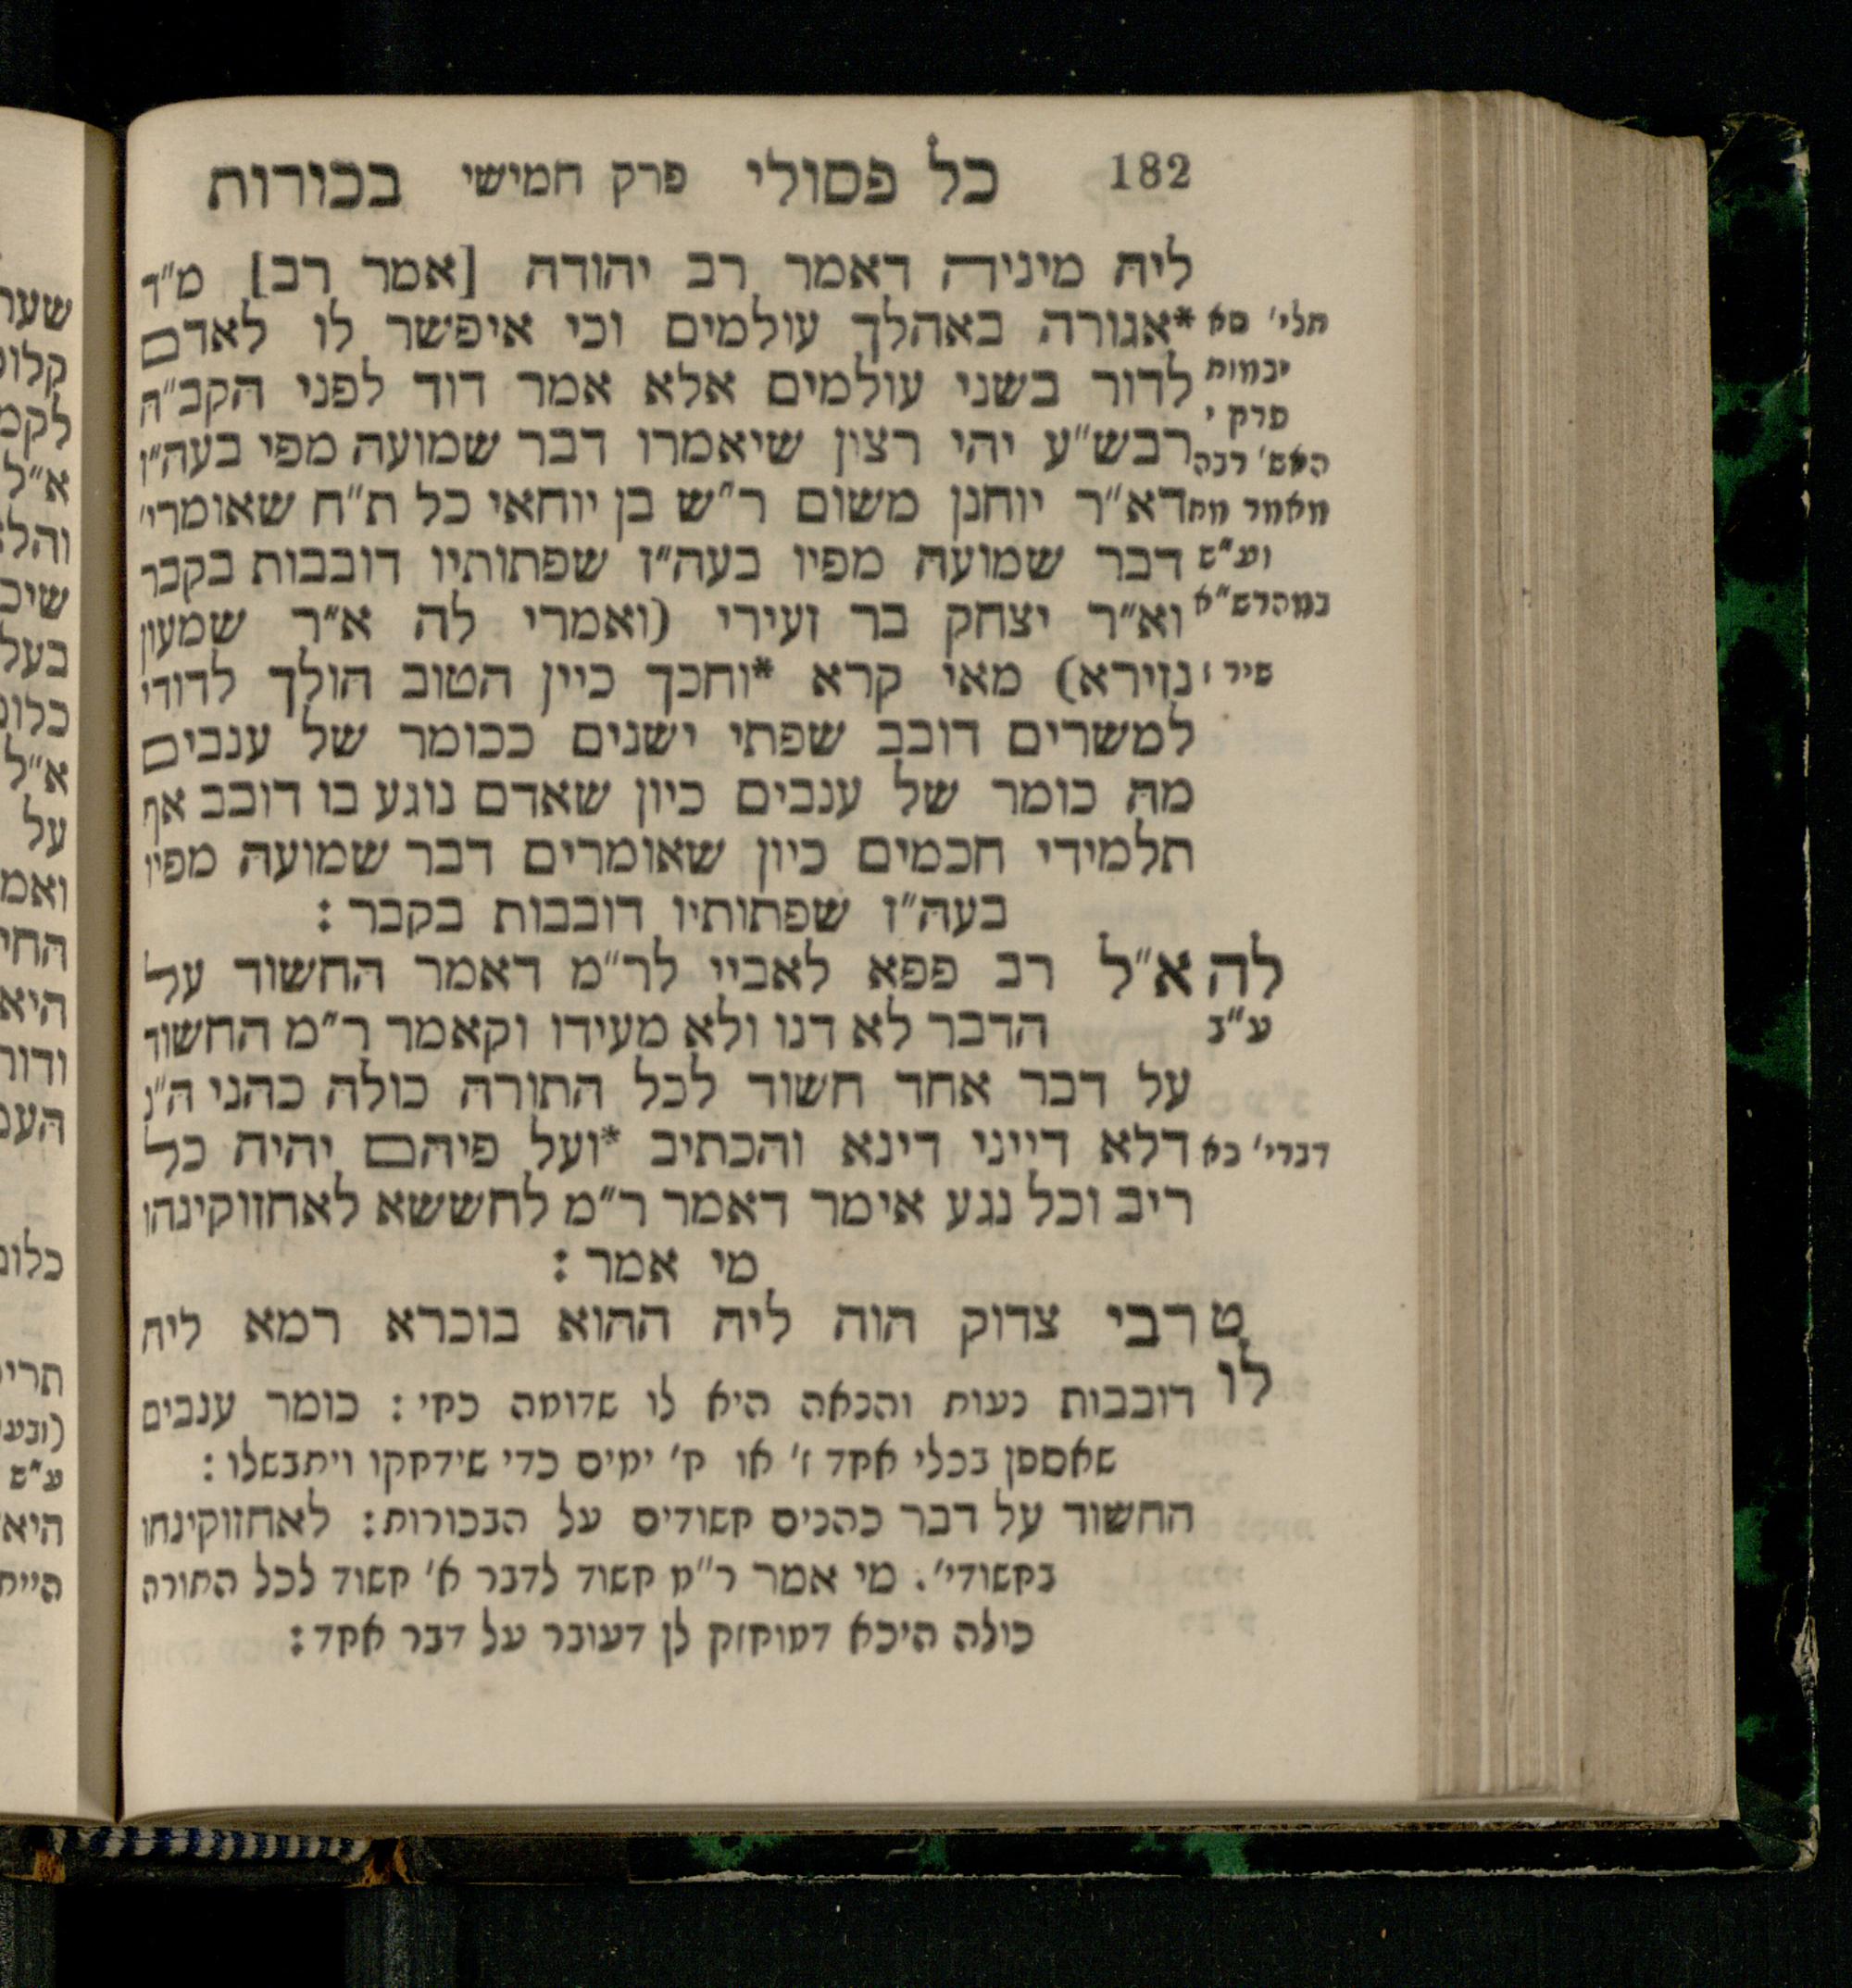 182 כל פסולי פרק חמישי בכורות
ליה מיניה דאמר רב יהודה [אמר רב] מ"ד
תלי' סא *אגורה באהלך עולמים וכי איפשר לו לאדם
יבמות לדור בשני עולמים אלא אמר דוד לפני הקב"ה
פרק י'
האש' רבה רבש"ע יהי רצון שיאמרו דבר שמועה מפי בעה"ז
מאמר מת דא"ר יוחנן משום ר"ש בן יוחאי כל ת"ח שאומרי'
וע"ש דבר שמועה מפיו בעה"ז שפתותיו דובבות בקבר
במהרש"א וא"ר יצחק בר זעירי (ואמרי לה א"ר שמעון
שיר ז נזירא) מאי קרא *וחכך כיין הטוב הולך לדודי
למשרים דובב שפתי ישנים ככומר של ענבים
מה כומר של ענבים כיון שאדם נוגע בו דובב אף
תלמידי חכמים כיון שאומרים דבר שמועה מפיו
בעה"ז שפתותיו דובבות בקבר :
לה א"ל רב פפא לאביי לר"מ דאמר החשוד על
ע"ב הדבר לא דנו ולא מעידו וקאמר ר"מ החשוד
על דבר אחד חשוד לכל התורה כולה כהני ה"נ
דברי' כא דלא דייני דינא והכתיב *ועל פיהם יהיה כל
ריב וכל נגע אימר דאמר ר"מ לחששא לאחזוקינהו
מי אמר :
ט רבי צדוק הוה ליה ההוא בוכרא רמא ליה
לו
דובבות נעות והנאה היא לו שדומה כחי : כומר ענבים
שאספן בכלי אחד ז' או ח' ימים כדי שידחקו ויתבשלו :
החשוד על דבר כהנים חשודים על הבכורות : לאחזוקינהו
בחשודי'. מי אמר ר"מ חשוד לדבר א' חשוד לכל התורה
כולה היכא דמוחזק לן דעובר על דבר אחד :